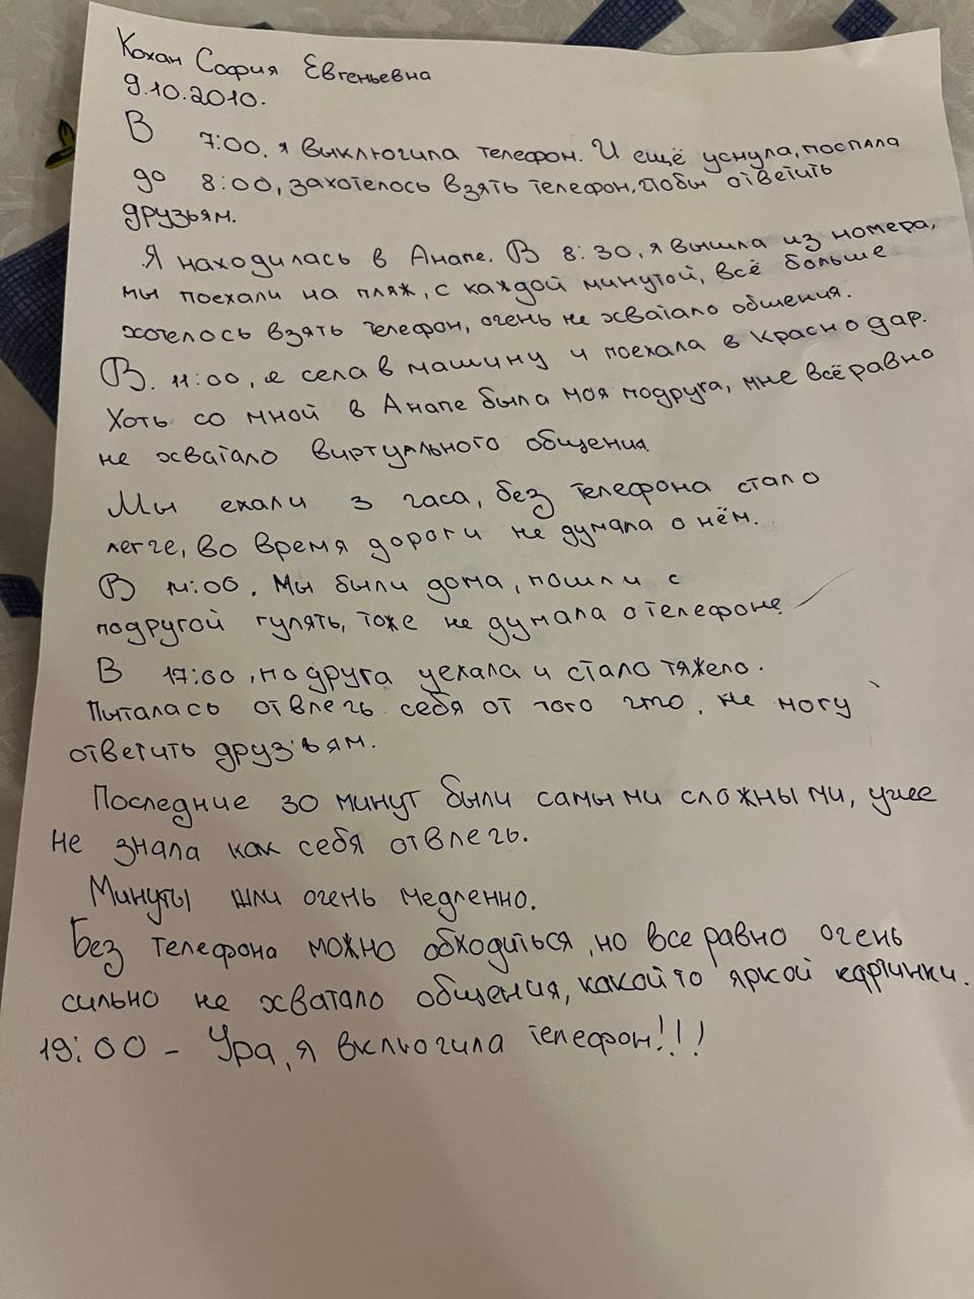 Кохан София Евгеньевна
9.10.2010.
В 7:00, я выключила телефон. И ещё уснула, поспала
до 8:00, захотелось взять телефон, чтобы ответить
друзьям.
Я находилась в Анапе. В 8:30, я вышла из номера,
мы поехали на пляж, с каждой минутой, всё больше
хотелось взять телефон, очень не хватало общения.
В. 11:00, я села в машину и поехала в Краснодар.
Хоть со мной в Анапе была моя подруга, мне всё равно
не хватало виртуального общения.
Мы ехали 3 часа, без телефона стало
легче, во время дороги не думала о нём.
В 14:00. Мы были дома, пошли с
подругой гулять, тоже не думала о телефоне
В 17:00, подруга уехала и стало тяжело.
Пыталась отвлечь себя от того что, не могу
ответить друзьям.
Последние 30 минут были самыми сложными, уже
не знала как себя отвлечь.
Минуты шли очень медленно.
Без телефона можно обходиться, но все равно очень
сильно не хватало общения, какой то яркой картинки.
19:00 - Ура, я включила телефон!!!